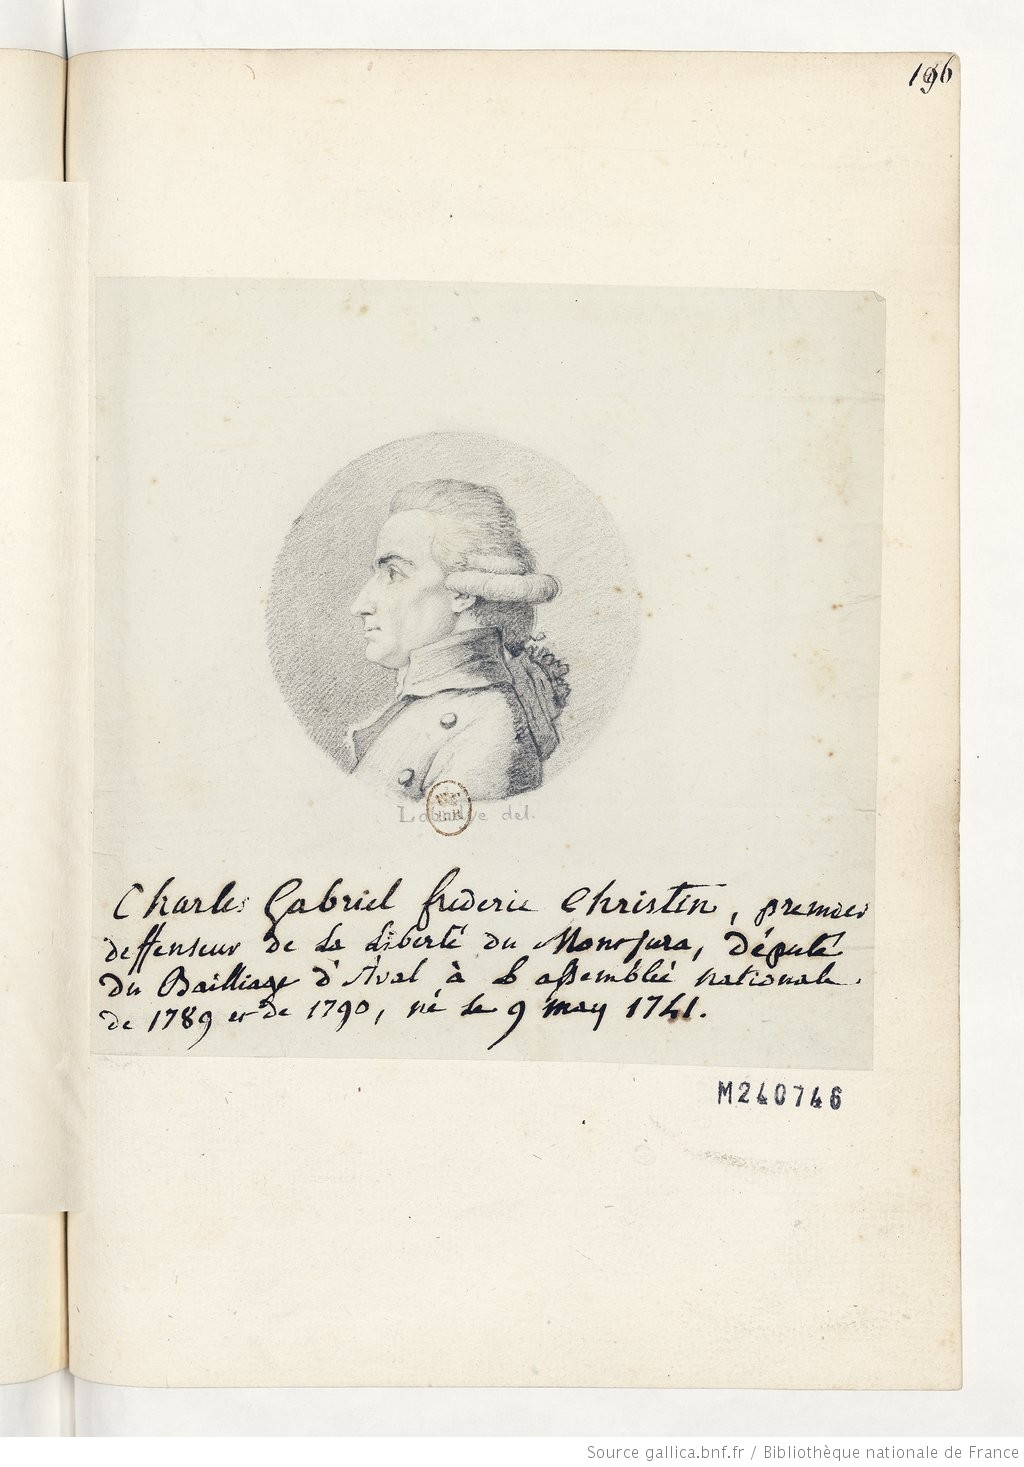 196
Labadye del.
Charles Gabriel frederic Christin, premier
deffenseur de La Liberté du Mont-jura, Député
du Bailliage d'Aval à L'assemblée nationale.
de 1789 et de 1790, né Le 9 may 1741.
M240746
Source gallica.bnf.fr / Bibliothèque nationale de France